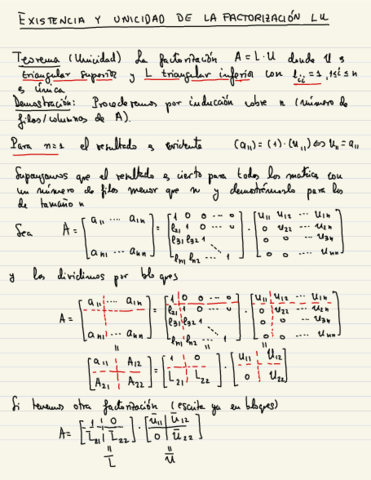 EXISTENCIA Y UNICIDAD DE LA FACTORIZACIÓN LU
Teorema (Unicidad) La factorización A = L·U donde U es
triangular superior y L triangular inferior con l_ii = 1, 1≤i≤n
es única.
Demostración: Procederemos por inducción sobre n (número de
filas/columnas de A).
Para n=1 el resultado es evidente (a11) = (1)·(u11) ⇔ u11 = a11
Supongamos que el resultado es cierto para todas las matrices con
un número de filas menor que n y demostrémoslo para las
de tamaño n
Sea A = [a11 ... a1n; an1 ... ann] = [1 0 0 ... 0; l21 1 0 ... 0; l31 l32 1; ln1 ln2 ... 1] · [u11 u12 ... u1n; 0 u22 ... u2n; 0 0 ... u3n; 0 0 ... unn]
y los dividimos por bloques
A = [a11 ... a1n; an1 ... ann] = [1 0 0 ... 0; l21 1 0 ... 0; l31 l32 1; ln1 ln2 ... 1] · [u11 u12 ... u1n; 0 u22 ... u2n; 0 0 ... u3n; 0 0 ... unn]
= = =
[a11 A12; A21 A22] = [1 0; L21 L22] · [u11 U12; 0 U22]
Si tenemos otra factorización (escrita ya en bloques)
A = [1 0; L̄21 L̄22] · [ū11 Ū12; 0 Ū22]
= =
L̄ Ū